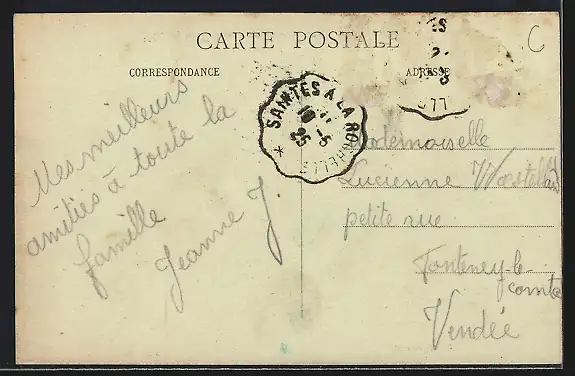 CARTE POSTALE
C
CORRESPONDANCE
ADRESSE
Mes meilleurs
amitiés à toute la
famille
Jeanne J.
SAINTES A LA ROCHELLE
Mademoiselle
Lucienne
petite rue
Fontenay-le-
comte
Vendée